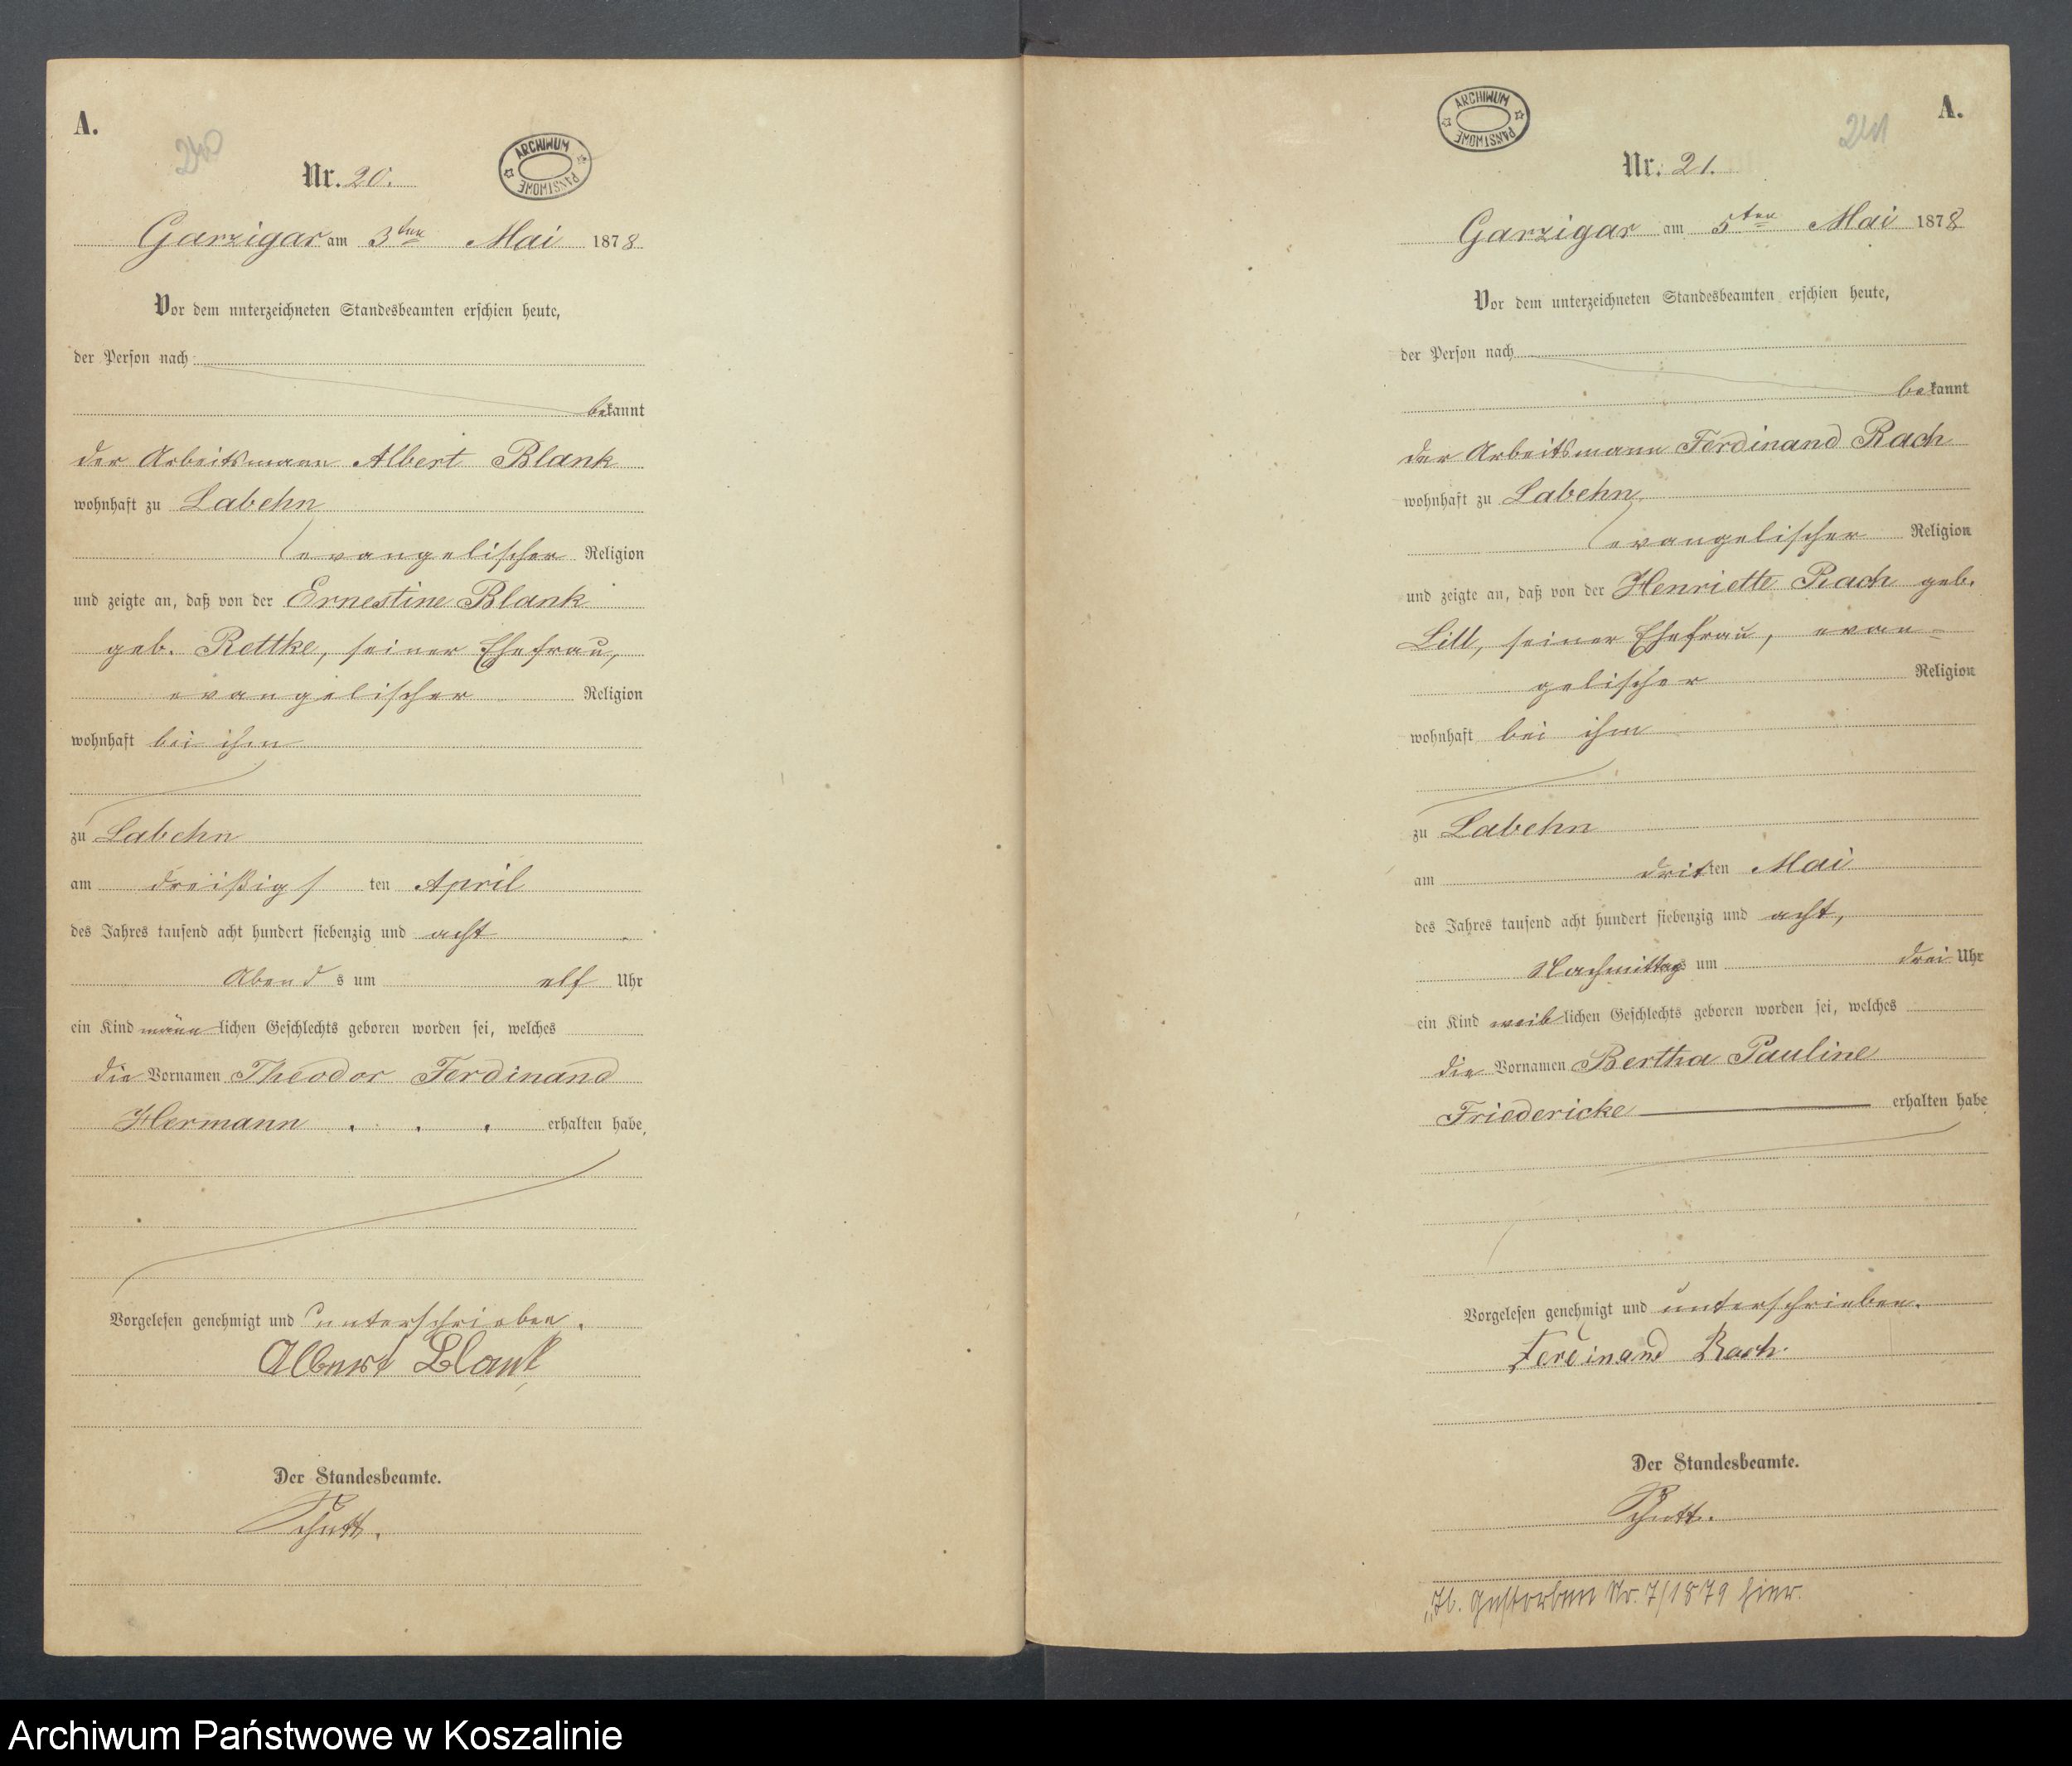 A.
240
Nr. 20.
ARCHIWUM PAŃSTWOWE
Garzigar am 3ten Mai 1878
Vor dem unterzeichneten Standesbeamten erschien heute,
der Person nach
bekannt
der Arbeitsmann Albert Blank
wohnhaft zu Labehn
evangelischer Religion
und zeigte an, daß von der Ernestine Blank
geb. Rettke, seiner Ehefrau,
evangelischer Religion
wohnhaft bei ihm
zu Labehn
am dreißigsten April
des Jahres tausend acht hundert siebenzig und acht
Abends um elf Uhr
ein Kind männlichen Geschlechts geboren worden sei, welches
die Vornamen Theodor Ferdinand
Hermann . . . erhalten habe,
Vorgelesen genehmigt und unterschrieben.
Albert Blank
Der Standesbeamte.
Schutt.
A.
241
ARCHIWUM PAŃSTWOWE
Nr. 21.
Garzigar am 5ten Mai 1878
Vor dem unterzeichneten Standesbeamten erschien heute,
der Person nach
bekannt
der Arbeitsmann Ferdinand Rach
wohnhaft zu Labehn
evangelischer Religion
und zeigte an, daß von der Henriette Rach geb.
Lill, seiner Ehefrau, evan-
gelischer Religion
wohnhaft bei ihm
zu Labehn
am dritten Mai
des Jahres tausend acht hundert siebenzig und acht,
Nachmittags um drei Uhr
ein Kind weiblichen Geschlechts geboren worden sei, welches
die Vornamen Bertha Pauline
Friedericke erhalten habe
Vorgelesen genehmigt und unterschrieben.
Ferdinand Rach.
Der Standesbeamte.
Schutt.
gestorben Nr. 7/1879 hier.
Archiwum Państwowe w Koszalinie